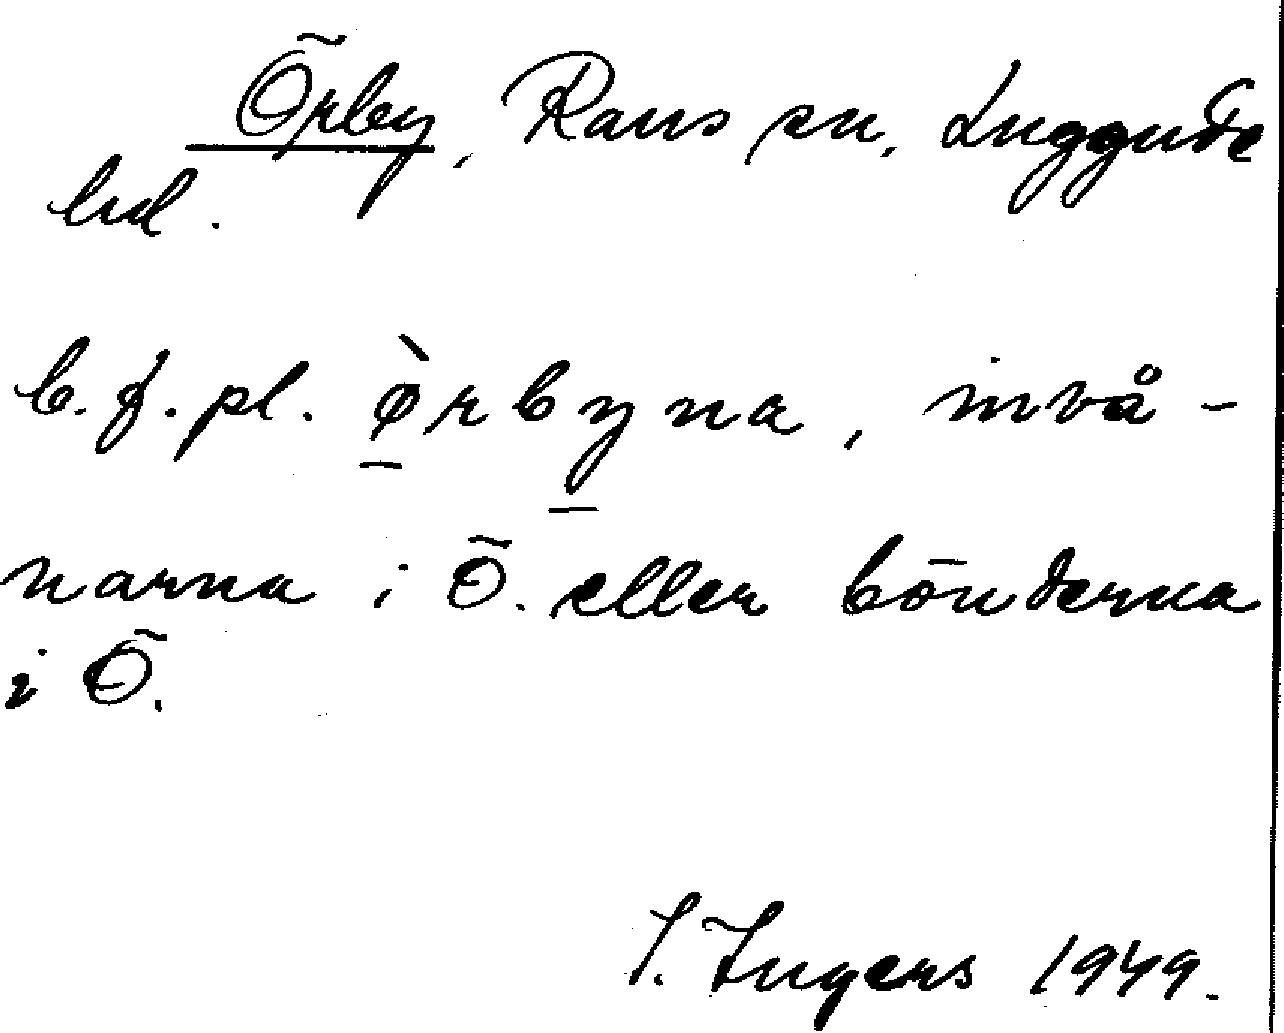 Örby, Raus sn, Luggude
hd.
b.f. pl. ø̱̀rby̱na, invå-
narna i Ö. eller bönderna
i Ö.
I. Ingers 1949.